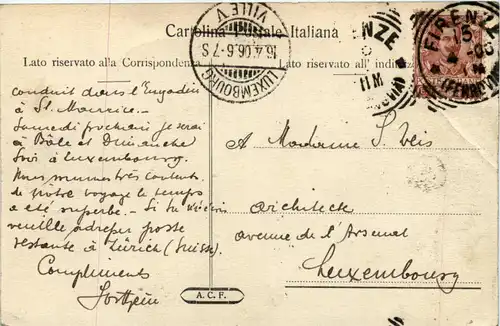 Cartolina Postale Italiana
Lato riservato alla Corrispondenza
Lato riservato all' indirizzo
LUXEMBOURG VILLE V
16.4.06.6-7 S
FIRENZE
15
FIRENZE
11 M
conduit dans l'Engadin
à St. Maurice.
Samedi prochain je serai
à Bâle et Dimanche
soir à Luxembourg.
Nous sommes très contents
de notre voyage le temps
a été superbe. - Si tu
veuille adresser poste
restante à Zürich (Suisse).
Compliments
A Madame S. Weis
Architecte
avenue de l'Arsenal
Luxembourg
A. C. F.